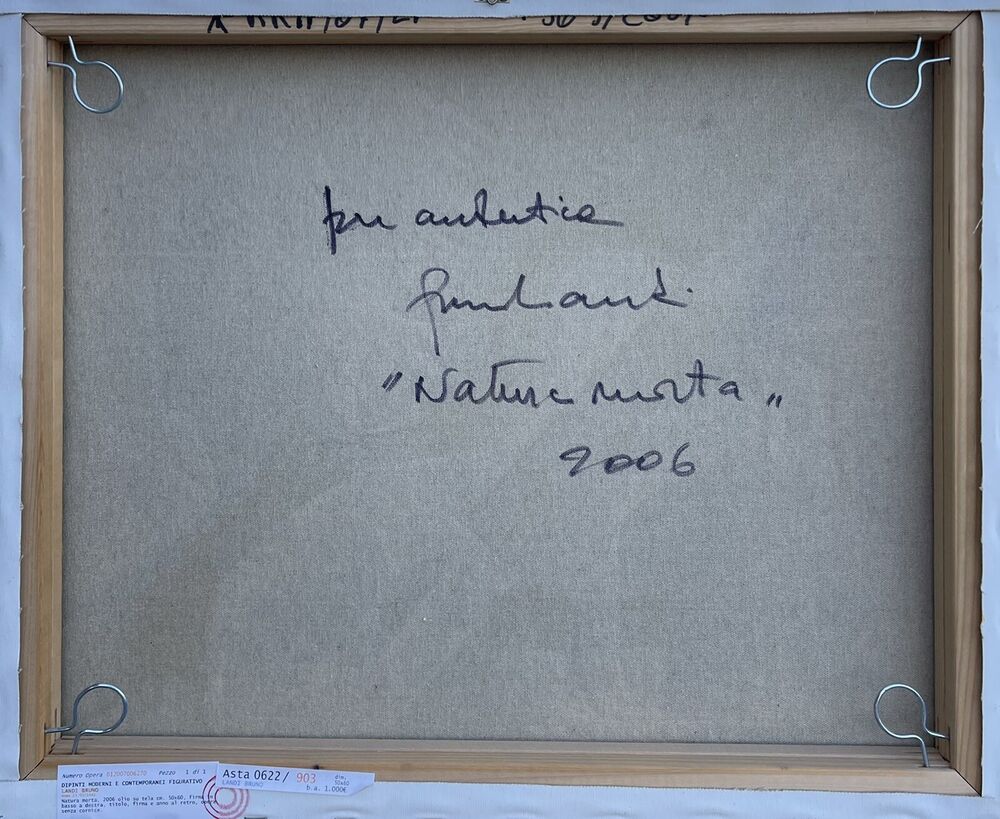 per autentica
Bruno Landi
"Natura morta"
2006
Numero Opera Pezzo 1 di 1
DIPINTI MODERNI E CONTEMPORANEI FIGURATIVO
LANDI BRUNO
Natura morta, 2006 olio su tela cm. 50x60, firma in
basso a destra. titolo, firma e anno al retro, opera
senza cornice.
Asta 0622/ 903
dim.
50x60
LANDI BRUNO
b.a. 1.000€